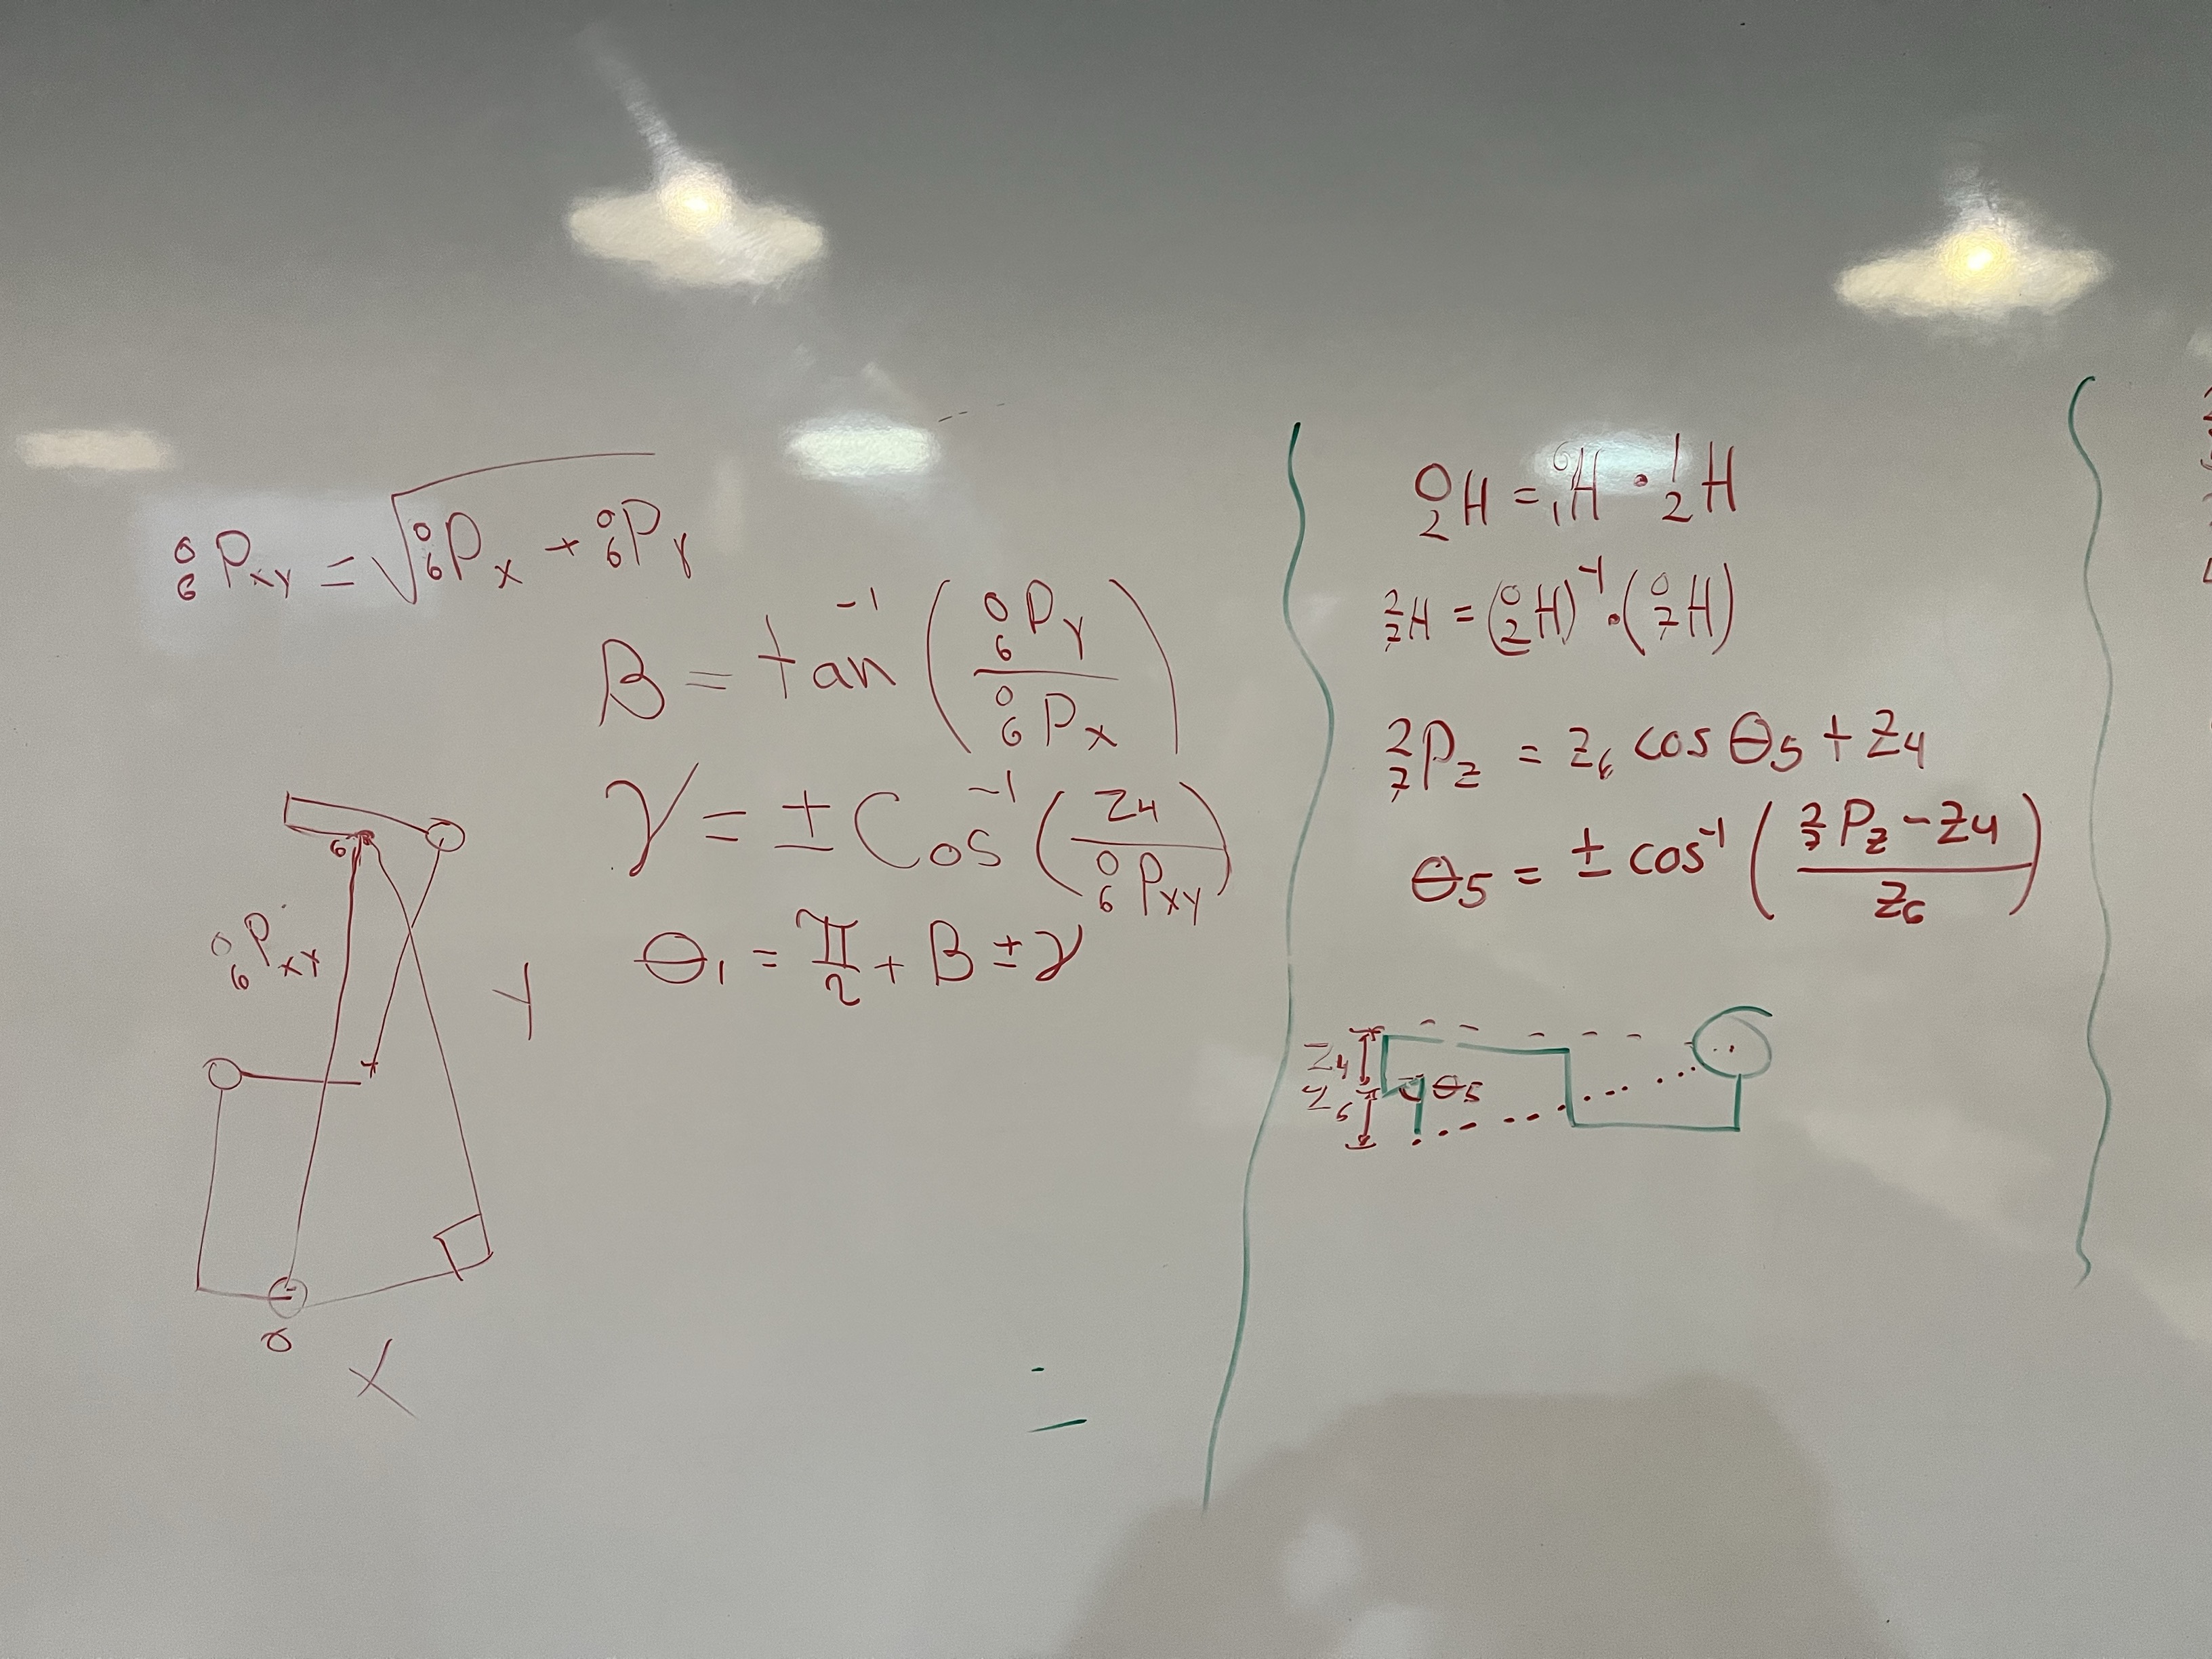 ⁰₆P_XY = √(⁰₆P_X + ⁰₆P_Y)
β = tan⁻¹(⁰₆P_Y / ⁰₆P_X)
γ = ± Cos⁻¹(Z₄ / ⁰₆P_XY)
θ₁ = π/2 + β ± γ
6
⁰₆P_XY
Y
0
X
⁰₂H = ⁰₁H · ¹₂H
²₇H = (⁰₂H)⁻¹ · (⁰₇H)
²₇P_Z = Z₆ cos θ₅ + Z₄
θ₅ = ± cos⁻¹((²₇P_Z - Z₄) / Z₆)
Z₄
Z₆
θ₅